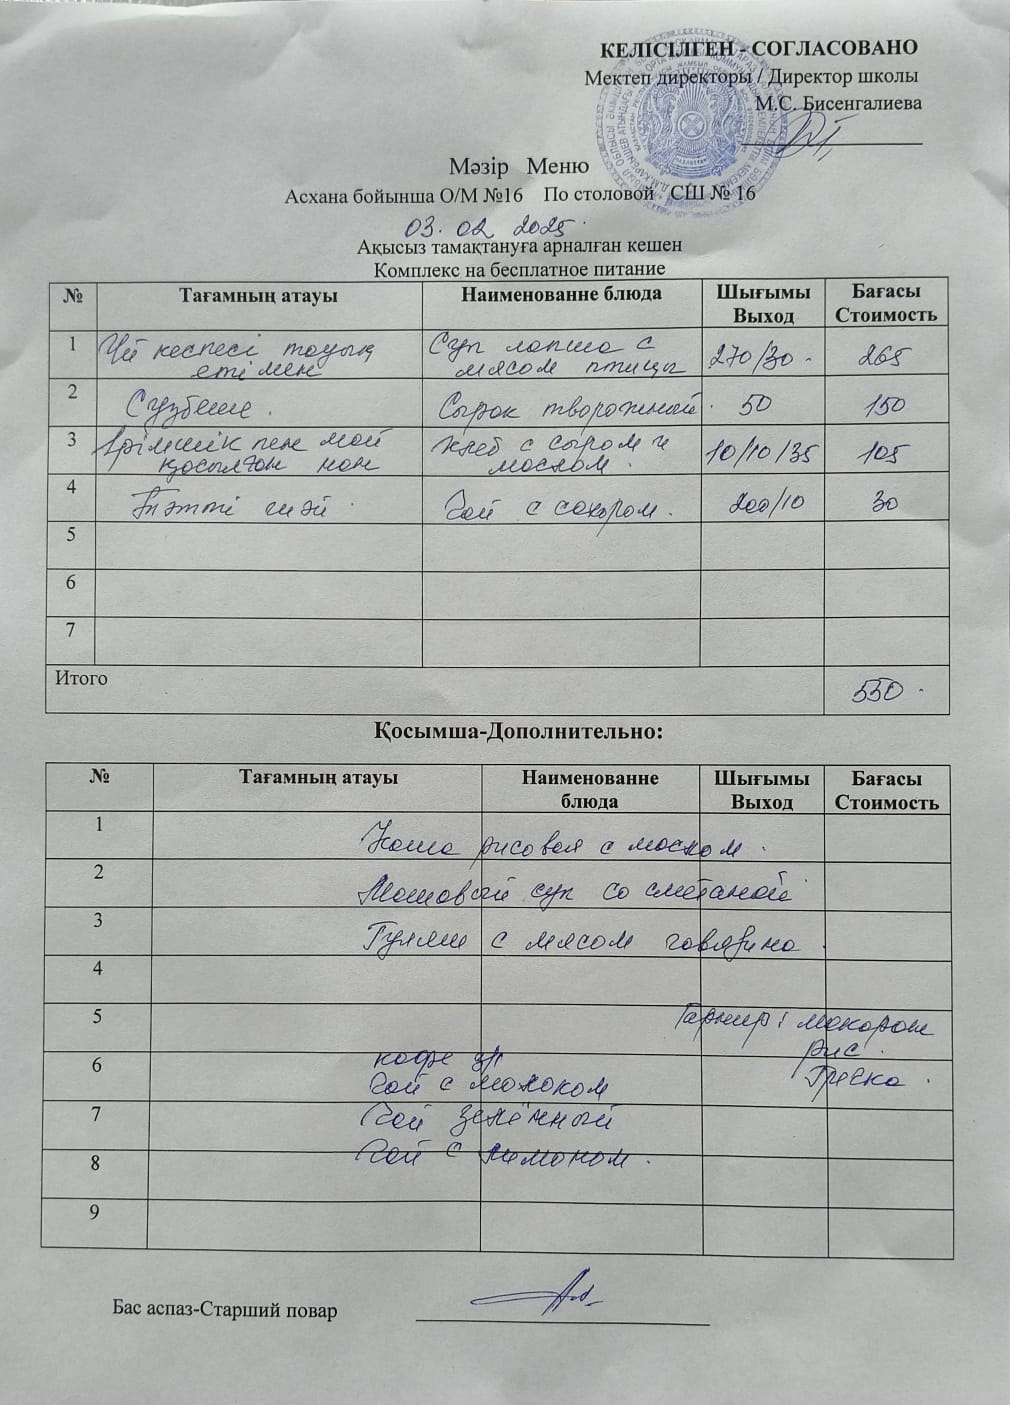 КЕЛІСІЛГЕН - СОГЛАСОВАНО
Мектеп директоры / Директор школы
М.С. Бисенгалиева
Мәзір Меню
Асхана бойынша О/М №16 По столовой СШ № 16
03. 02 2025.
Ақысыз тамақтануға арналған кешен
Комплекс на бесплатное питание
№ Тағамның атауы Наименованне блюда Шығымы Выход Бағасы Стоимость
1 Үй кеспесі тауық етімен Суп лапша с мясом птицы 270/30. 265
2 Сузбеше. Сырок творожный. 50 150
3 Ірімшік пен май қосылған нан Хлеб с сыром и маслом. 10/10/35 105
4 Тәтті шәй. Чай с сахаром. 200/10 30
5
6
7
Итого 550.
Қосымша-Дополнительно:
№ Тағамның атауы Наименованне блюда Шығымы Выход Бағасы Стоимость
1 Каша рисовая с маслом.
2 Машовый суп со сметаной
3 Гуляш с мясом говядина.
4
5 Гарнир: макарон
рис.
6 кофе 3/1 Гречка.
Чай с молоком
7 Чай зелённый
8 Чай с лимоном.
9
Бас аспаз-Старший повар